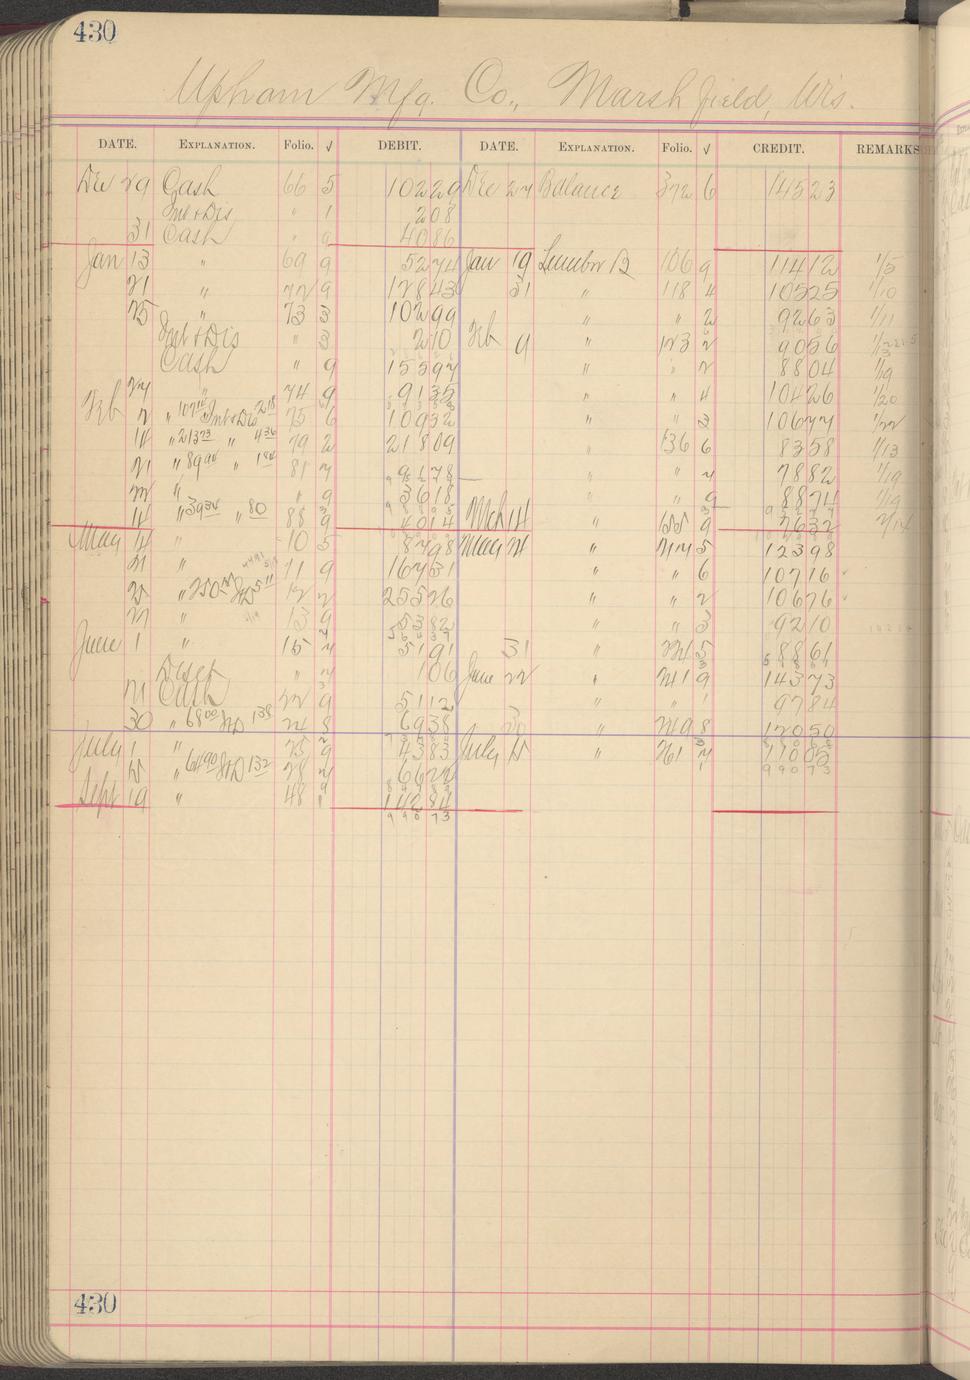 430
Upham Mfg. Co., Marshfield, Wis.
DATE. EXPLANATION. Folio. √ DEBIT. DATE. EXPLANATION. Folio. √ CREDIT. REMARKS
Dec 29 Cash 66 5 102 29 Dec 27 Balance 372 6 145 23
Int & Dis " 1 2 08
31 Cash " 9 40 86
Jan 13 " 69 9 52 74 Jan 19 Lumber B 106 9 114 12 1/5
21 " 72 9 128 43 31 " 118 4 105 25 1/10
25 " 73 3 102 99 " " 2 92 63 1/11
Int & Dis " 3 2 10 Feb 9 " 123 2 90 56
Cash " 9 155 92 " " 2 88 04 1/19
27 " 74 9 91 35 " " 4 104 26 1/20
Feb 2 " 107 14 Int & Dis 2 18 75 6 109 32 " " 3 106 77 1/22
14 " 213 73 " 4 36 79 2 218 09 " 136 6 83 58 1/13
21 " 89 94 " 1 84 81 7 91 78 " " 7 78 82 1/19
22 " " 9 36 18 " " 9 88 74 1/19
14 " 39 34 " 80 88 9 40 14 Mch 14 " 155 9 76 32
May 14 " 10 5 87 98 May 24 " 217 5 123 98
21 " 11 9 167 31 " " 6 107 16
25 " 250 15 I&D 5 11 12 2 255 26 " " 2 106 76
27 " 13 9 53 82 " " 3 92 10
June 1 " 15 7 51 91 31 " 224 5 88 61
Disct " 7 1 06 June 22 " 241 9 143 73
21 Cash 22 9 51 12 " " 1 97 84
30 " 68 00 I&D 1 38 24 8 69 38 30 " 249 8 120 50
July 1 " 25 9 43 83 July 15 " 261 7 110 85
15 " 64 90 I&D 1 32 28 7 66 22 9 90 73
Sept 19 " 48 1 142 84
9 90 73
430